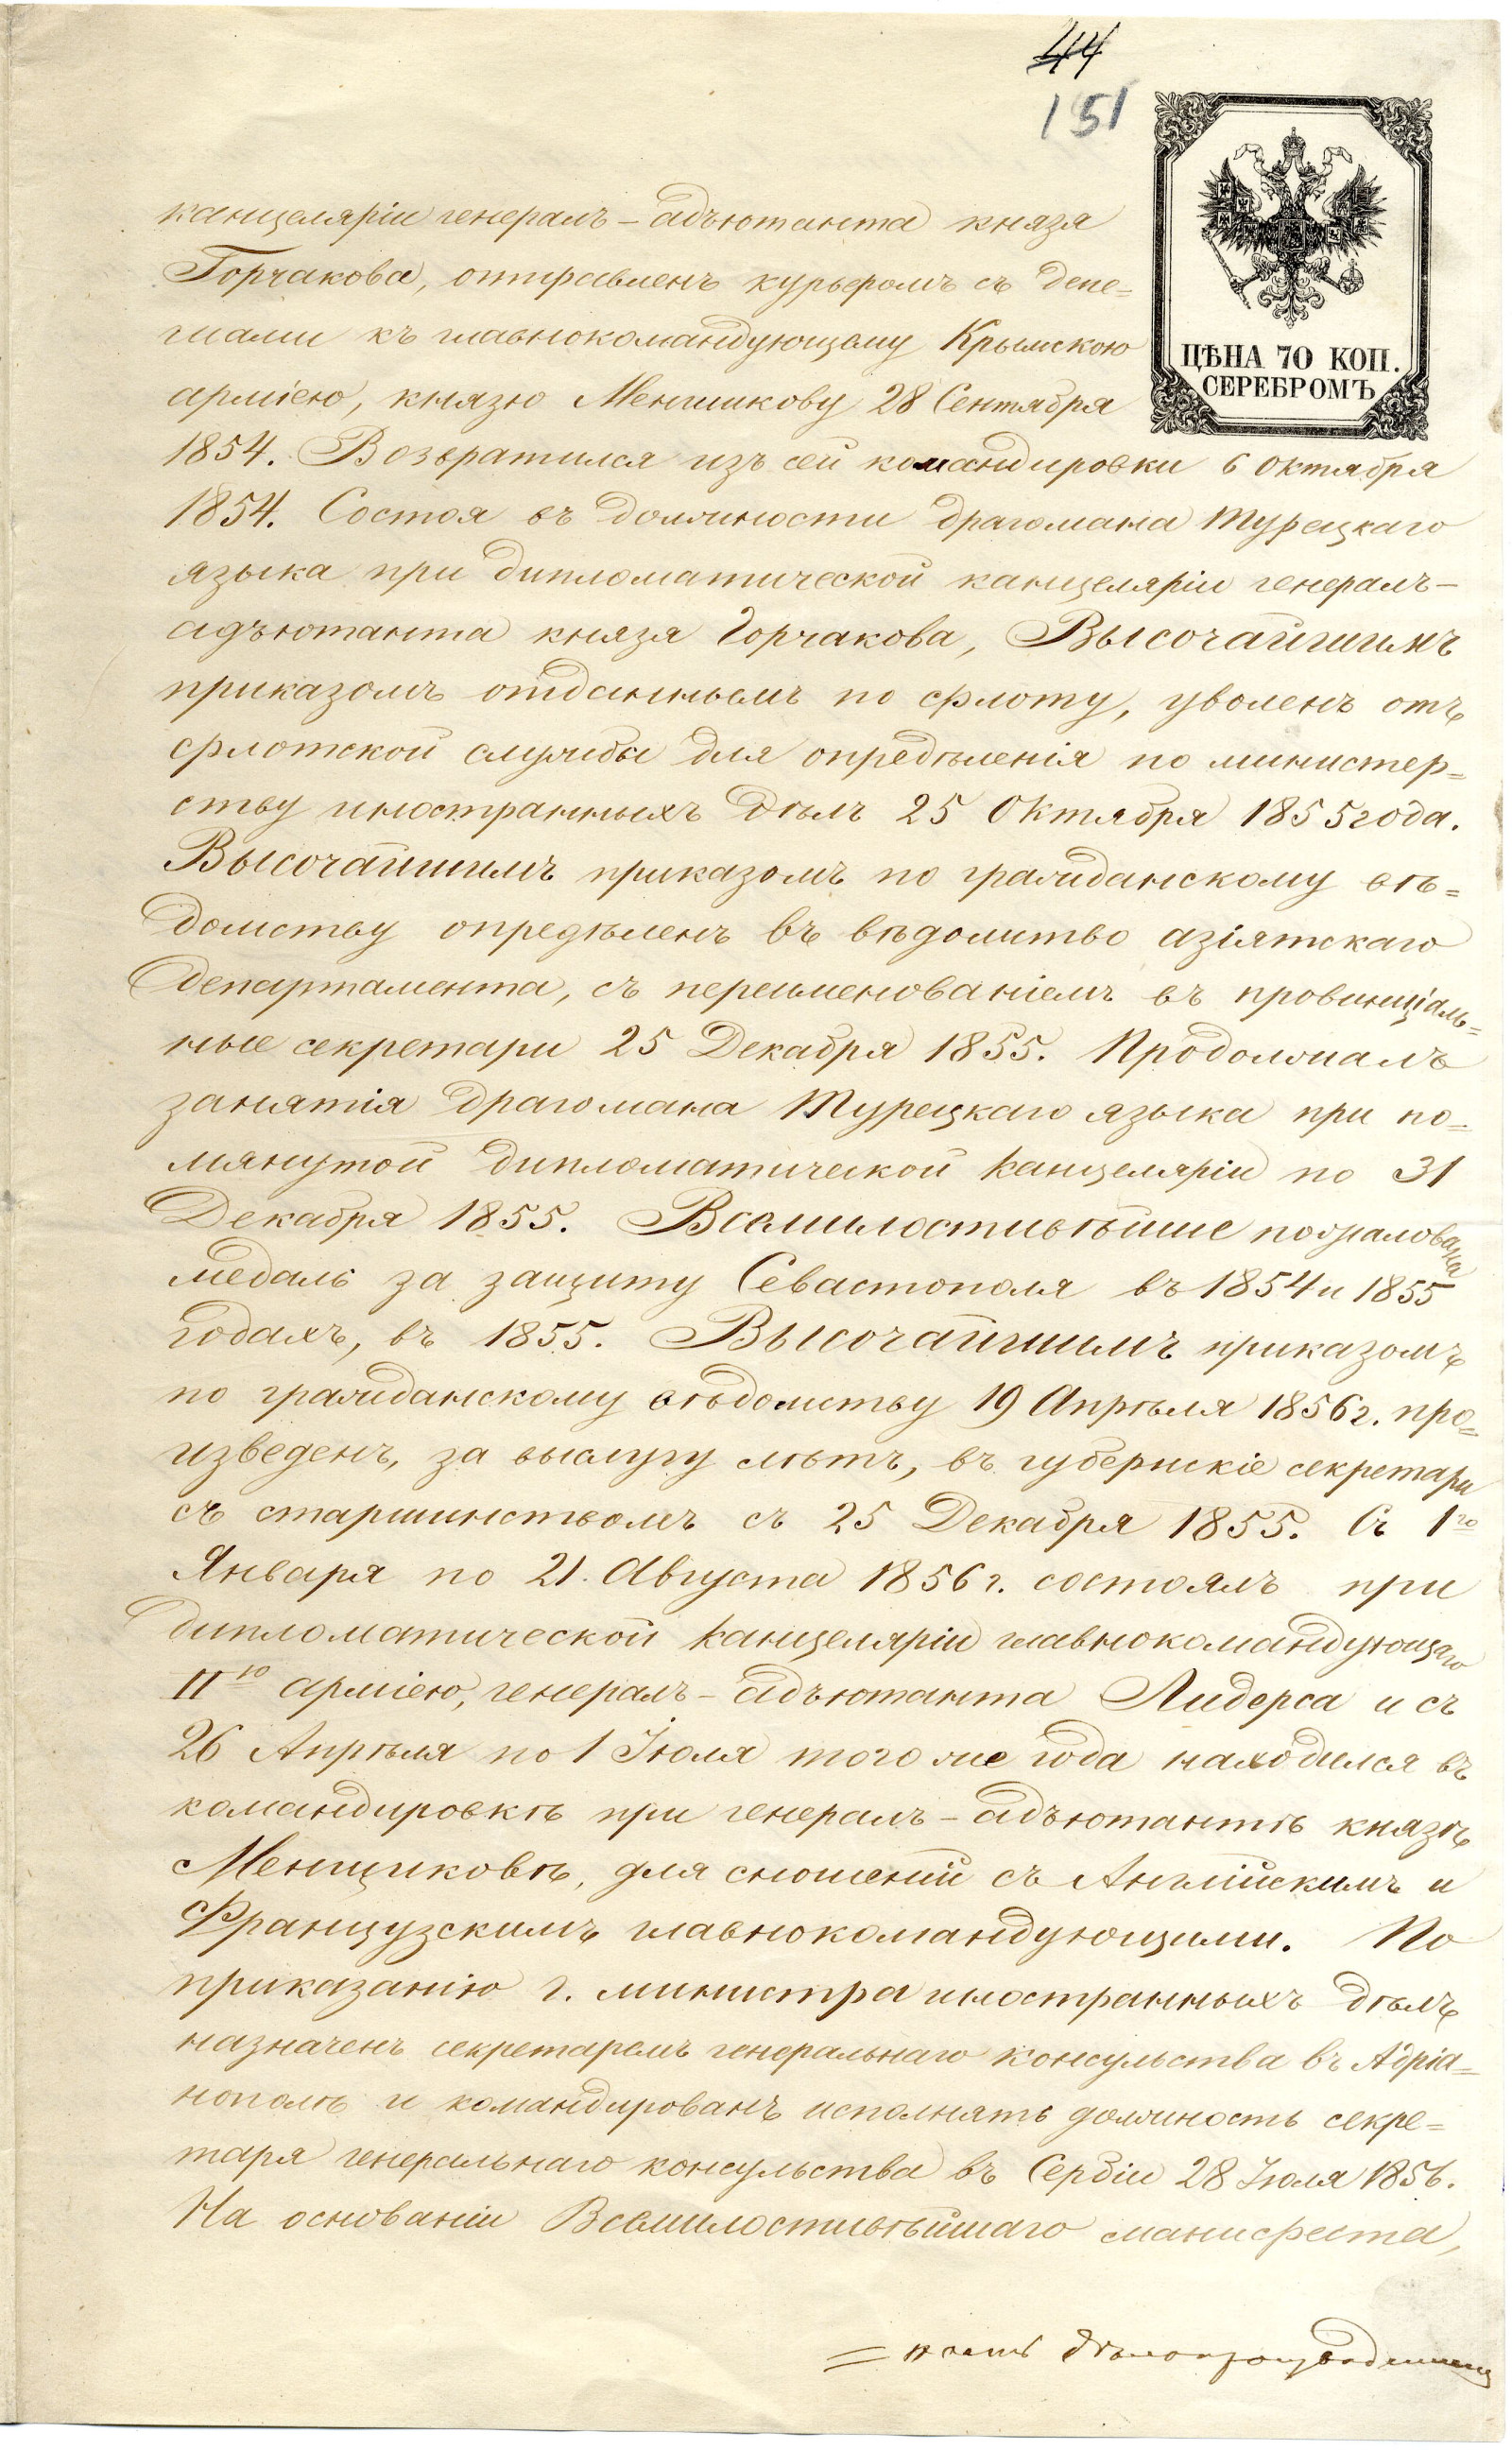 44
151
ЦѢНА 70 КОП.
СЕРЕБРОМЪ
канцеляріи генералъ-адъютанта князя
Горчакова, отправленъ курьеромъ съ депе=
шами къ главнокомандующему Крымскою
арміею, князю Меншикову 28 Сентября
1854. Возвратился изъ сей командировки 6 Октября
1854. Состоя въ должности драгомана Турецкаго
языка при дипломатической канцеляріи генералъ-
адъютанта князя Горчакова, Высочайшимъ
приказомъ отданнымъ по флоту, уволенъ отъ
флотской службы для опредѣленія по министер=
ству иностранныхъ дѣлъ 25 Октября 1855 года.
Высочайшимъ приказомъ по гражданскому вѣ=
домству опредѣленъ въ вѣдомство азіятскаго
департамента, съ переименованіемъ въ провинціаль=
ные секретари 25 Декабря 1855. Продолжалъ
занятія драгомана Турецкаго языка при по=
мянутой дипломатической канцеляріи по 31
Декабря 1855. Всемилостивѣйше пожалована
медаль за защиту Севастополя въ 1854 и 1855
годахъ, въ 1855. Высочайшимъ приказомъ
по гражданскому вѣдомству 19 Апрѣля 1856 г. про=
изведенъ, за выслугу лѣтъ, въ губернскіе секретари
съ старшинствомъ съ 25 Декабря 1855. Съ 1го
Января по 21. Августа 1856 г. состоялъ при
дипломатической канцеляріи главнокомандующаго
IIю арміею, генералъ-адъютанта Лидерса и съ
26 Апрѣля по 1 Іюля того же года находился въ
командировкѣ при генералъ-адъютантѣ князѣ
Менщиковѣ, для сношеній съ Англійскимъ и
Французскимъ главнокомандующими. По
приказанію г. министра иностранныхъ дѣлъ
назначенъ секретаремъ генеральнаго консульства въ Адріа=
нополѣ и командированъ исполнять должность секре=
таря генеральнаго консульства въ Сербіи 28 Іюля 1856.
На основаніи Всемилостивѣйшаго манифеста,